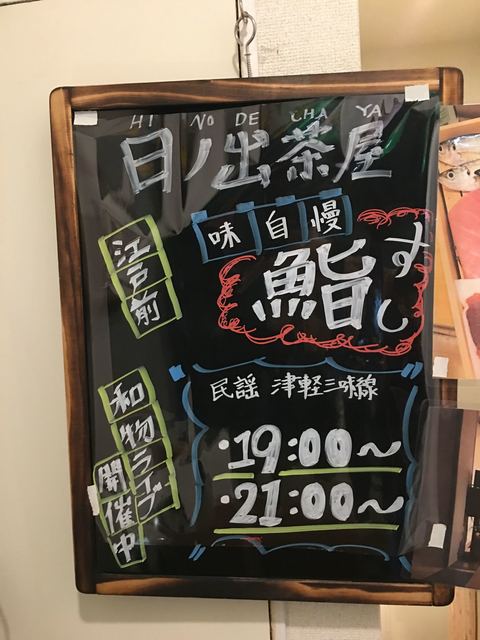 HI NO DE CHA YA
日ノ出茶屋
味自慢
江戸前
鮨
すし
民謡 津軽三味線
・19:00～
・21:00～
和物ライブ
開催中